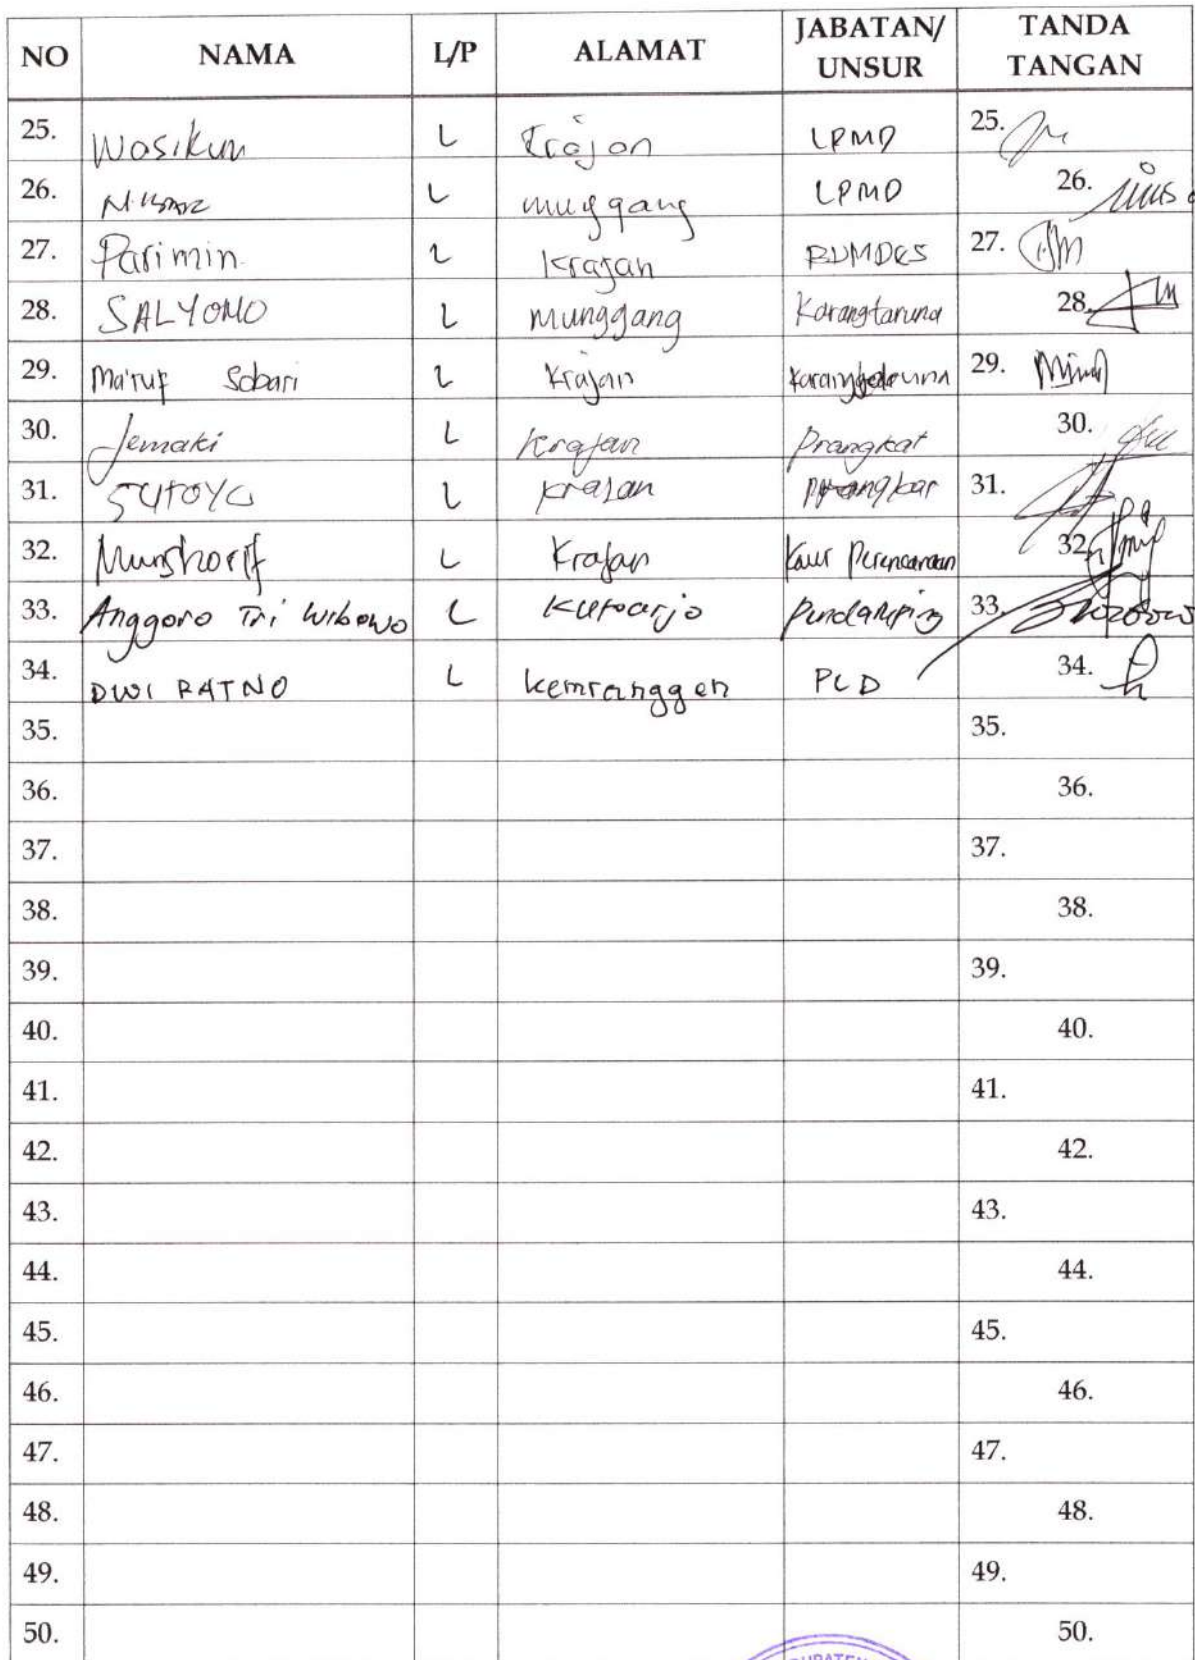 NO NAMA L/P ALAMAT JABATAN/ UNSUR TANDA TANGAN
25. Wasikun L Krajan LPMD 25.
26. L munggang LPMD 26.
27. Parimin L Krajan BUMDES 27.
28. SALYONO L Munggang Karangtaruna 28.
29. Ma'ruf Sobari L Krajan 29.
30. Jemaki L Krajan Prangkat 30.
31. SUTOYO L Krajan 31.
32. Munshorif L Krajan Kaur Perencanaan 32.
33. Anggoro Tri Wibowo L Kutoarjo Pendamping 33.
34. DWI RATNO L Kemranggen PLD 34.
35. 35.
36. 36.
37. 37.
38. 38.
39. 39.
40. 40.
41. 41.
42. 42.
43. 43.
44. 44.
45. 45.
46. 46.
47. 47.
48. 48.
49. 49.
50. 50.